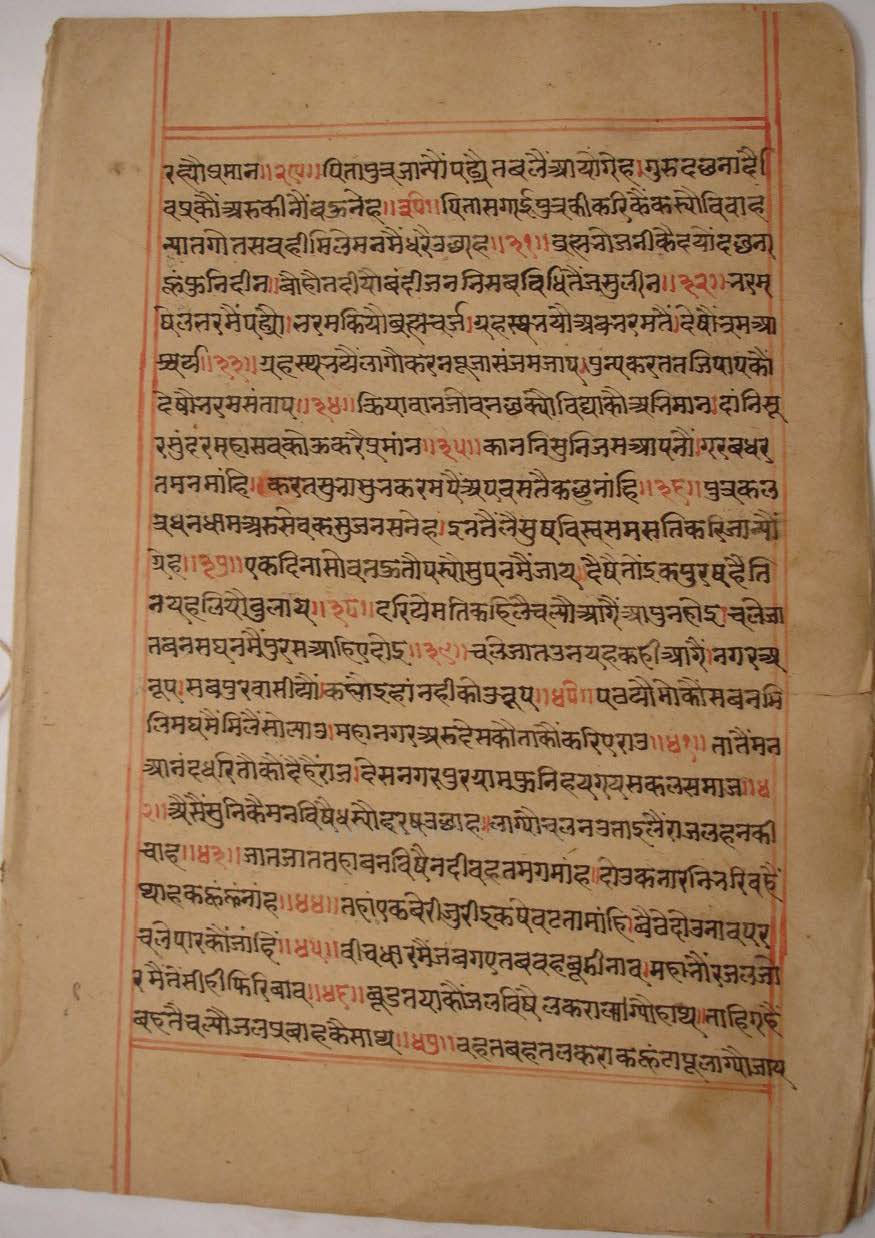 रह्यौ प्रमान ॥२९॥ पिता पुत्र जान्यौं पढ्यौ तब लै आयो गेह । गुरु दछना दै
बप्रकौं अरु कीनौं बऊ नेह ॥३०॥ पिता सगाई पुत्र की करिकैं कस्यौ विवाह
न्यात गोत सब ही मिले मन मैं धरै उछाह ॥३१॥ ब्रह्मभोजनी कै दयो दछना
दीन । बोहौत दीयो बंदीजननि सब विधि तैं जु सुलीन ॥३२॥ भरम
भरम मैं पढ्यौ । भरम कियौ ब्रह्मचर्ज । ग्रहस्थ भयौ अब भरम तैं । देषौ भ्रम आ
श्चर्य ॥३३॥ ग्रहस्थ भयैं लागौ करन पूजा संजम जाप । पुन्य करत तजि पाप कौं
देषौ भरम संताप ॥३४॥ क्रियावान जोबन छक्यौ विद्या कौ अभिमान । दांनि सू
र सुंदर महा सब कोऊ करै प्रमांन ॥३५॥ काननि सुनि जस आपनौं । गरब धर
त मन मांहि । करत सुभासुभ करम यैं अपबस तै कछु नांहि ॥३६॥ पुत्र कल
त्र धन धाम अरु सेवक सुजन सनेह । इनतैं लै सुष विस्व सम सति करि जान्यौं
ग्रेह ॥३७॥ एक दिना सोवत ऊतौ पस्यौ सुपन मैं जाय । देषै तो इक पुरष है ति
न यह लियौ बुलाय ॥३८॥ कहि लै चल्यौ आगैं आपुन होइ । चले जा
त बन सघन मैं पुरम आहि ए दोइ ॥३९॥ चले जात उन यह कही आगैं । नगर अ
नूप । सब पुरवासी यौं इहां नही को उ भूप ॥४०॥ पठयौ मोकौं सबन मि
लि मघ मैं मिलैं सो ल्याउ । महानगर अरु देस कौ ताकौं करिए राउ ॥४१॥ तातैं मन
आनंद धरि तौकौं दैहैं राज । देस नगर पुर हय गय सकल समाज ॥४
२॥ अैसैं सुनिकै मन विषै धस्यौ हरष उछाह । लाग्यौ चलन उताइलैं राज लहन की
चाह ॥४३॥ जात जात तहा बन विषै नदी बहत मग मांह । दोउ कनारनि भरि बहै
थाह कऊं नांह ॥४४॥ तहां एक बेरी जुरी इक षेवट ता मांहि । बैठे दोउ नाव पर
चले पार कौं जांहिं ॥४५॥ बीच धार मैं जब गए तब वह बूडी नाव । महा जोर जल जो
र मैं तैसी ही फिरि बाव ॥४६॥ बूडत याकौं जल विषै लकरा लाग्यौ हाथ । ताहि गहैं
बहतै चल्यौ जल प्रबाह कै साथ ॥४७॥ बहत बहत लकरा कऊं टापू लाग्यौ जाय